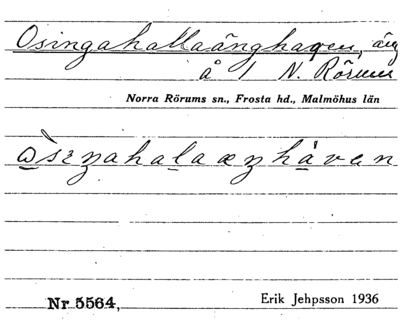 Osingahallaänghagen, äng
å 1 N. Rörum
Norra Rörums sn., Frosta hd., Malmöhus län
Nr 5564,
Erik Jehpsson 1936